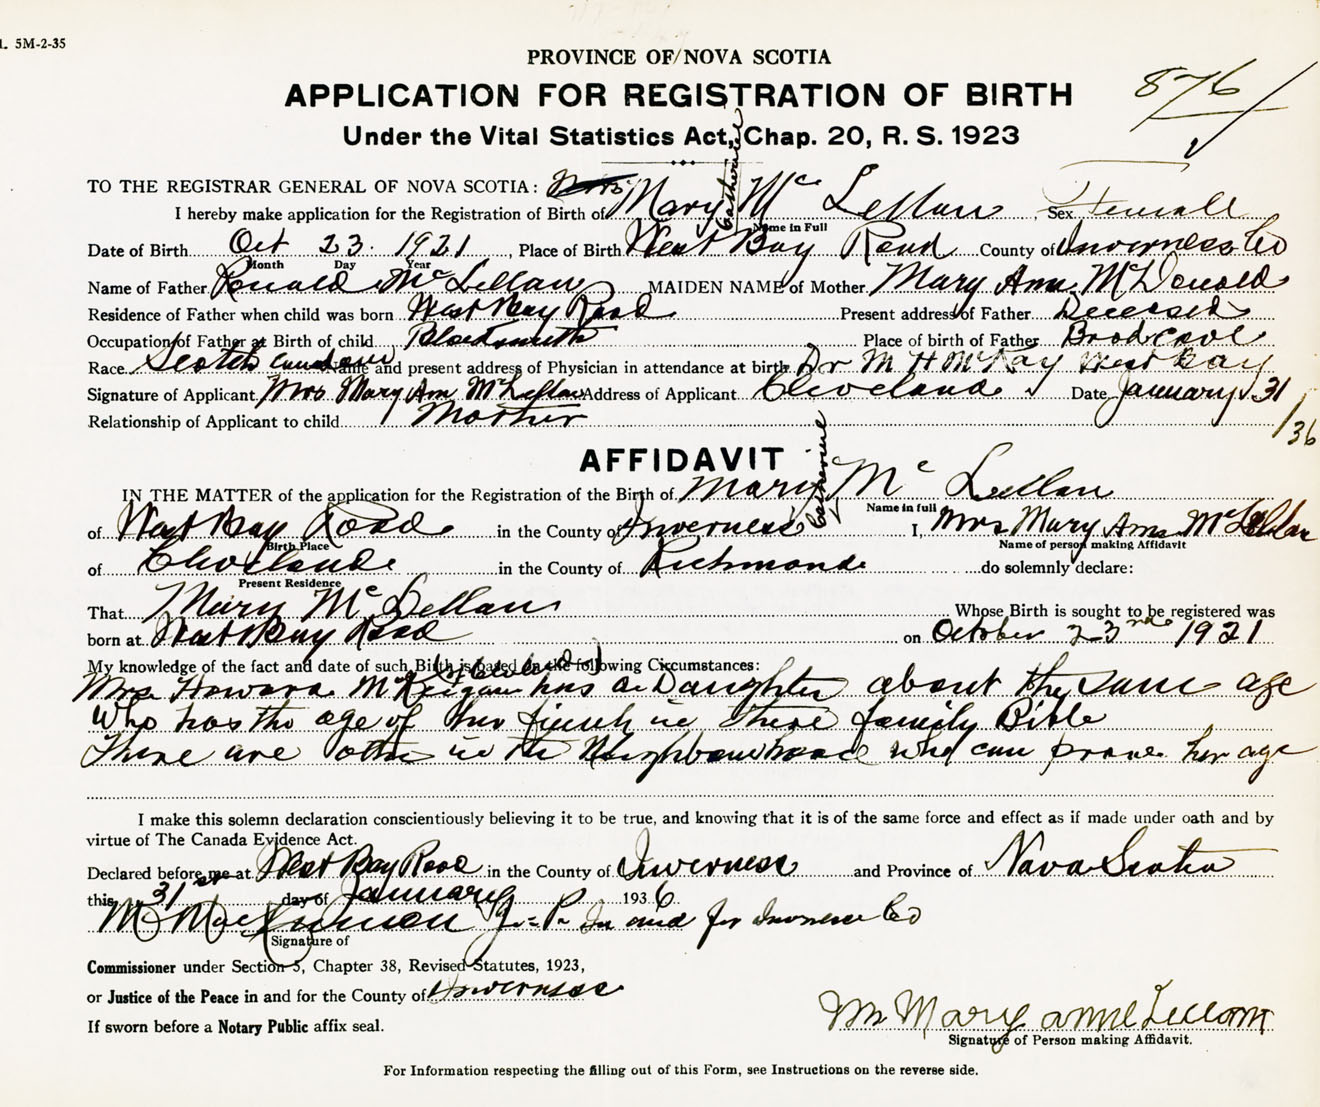 1. 5M-2-35
PROVINCE OF NOVA SCOTIA
APPLICATION FOR REGISTRATION OF BIRTH
876
Under the Vital Statistics Act, Chap. 20, R. S. 1923
TO THE REGISTRAR GENERAL OF NOVA SCOTIA:
I hereby make application for the Registration of Birth of Mary Catherine Mc Lellan Sex Femall
Name in Full
Date of Birth Oct 23. 1921, Place of Birth West Bay Road County of Inverness Co
Month Day Year
Name of Father Ronald McLellan MAIDEN NAME of Mother Mary Ann McDonald
Residence of Father when child was born West Bay Road Present address of Father Decesed
Occupation of Father at Birth of child Blacksmith Place of birth of Father Broad Cove
Race Scotch Canadian Name and present address of Physician in attendance at birth Dr M H McKay West Bay
Signature of Applicant Mrs Mary Ann McLellan Address of Applicant Cleveland Date January 31/36
Relationship of Applicant to child Mother
AFFIDAVIT
IN THE MATTER of the application for the Registration of the Birth of Mary Catherine Mc Lellan
Name in full
of West Bay Road in the County of Inverness I, Mrs Mary Ann McLellan
Birth Place Name of person making Affidavit
of Cleveland in the County of Richmond do solemnly declare:
Present Residence
That Mary McLellan Whose Birth is sought to be registered was
born at West Bay Road on October 23rd 1921
My knowledge of the fact and date of such Birth is based on the following Circumstances:
(of Cleveland)
Mrs Howard McKeigan has a Daughter about the same age
Who has the age of her in there family Bible
There are other in the Neighbourhood who can prove her age
I make this solemn declaration conscientiously believing it to be true, and knowing that it is of the same force and effect as if made under oath and by
virtue of The Canada Evidence Act.
Declared before me at West Bay Road in the County of Inverness and Province of Nova Scotia
this 31st day of January 1936.
M MacKinnon J. P. In and for Inverness Co
Signature of
Commissioner under Section 5, Chapter 38, Revised Statutes, 1923,
or Justice of the Peace in and for the County of Inverness
If sworn before a Notary Public affix seal.
Mrs Mary
Signature of Person making Affidavit.
For Information respecting the filling out of this Form, see Instructions on the reverse side.